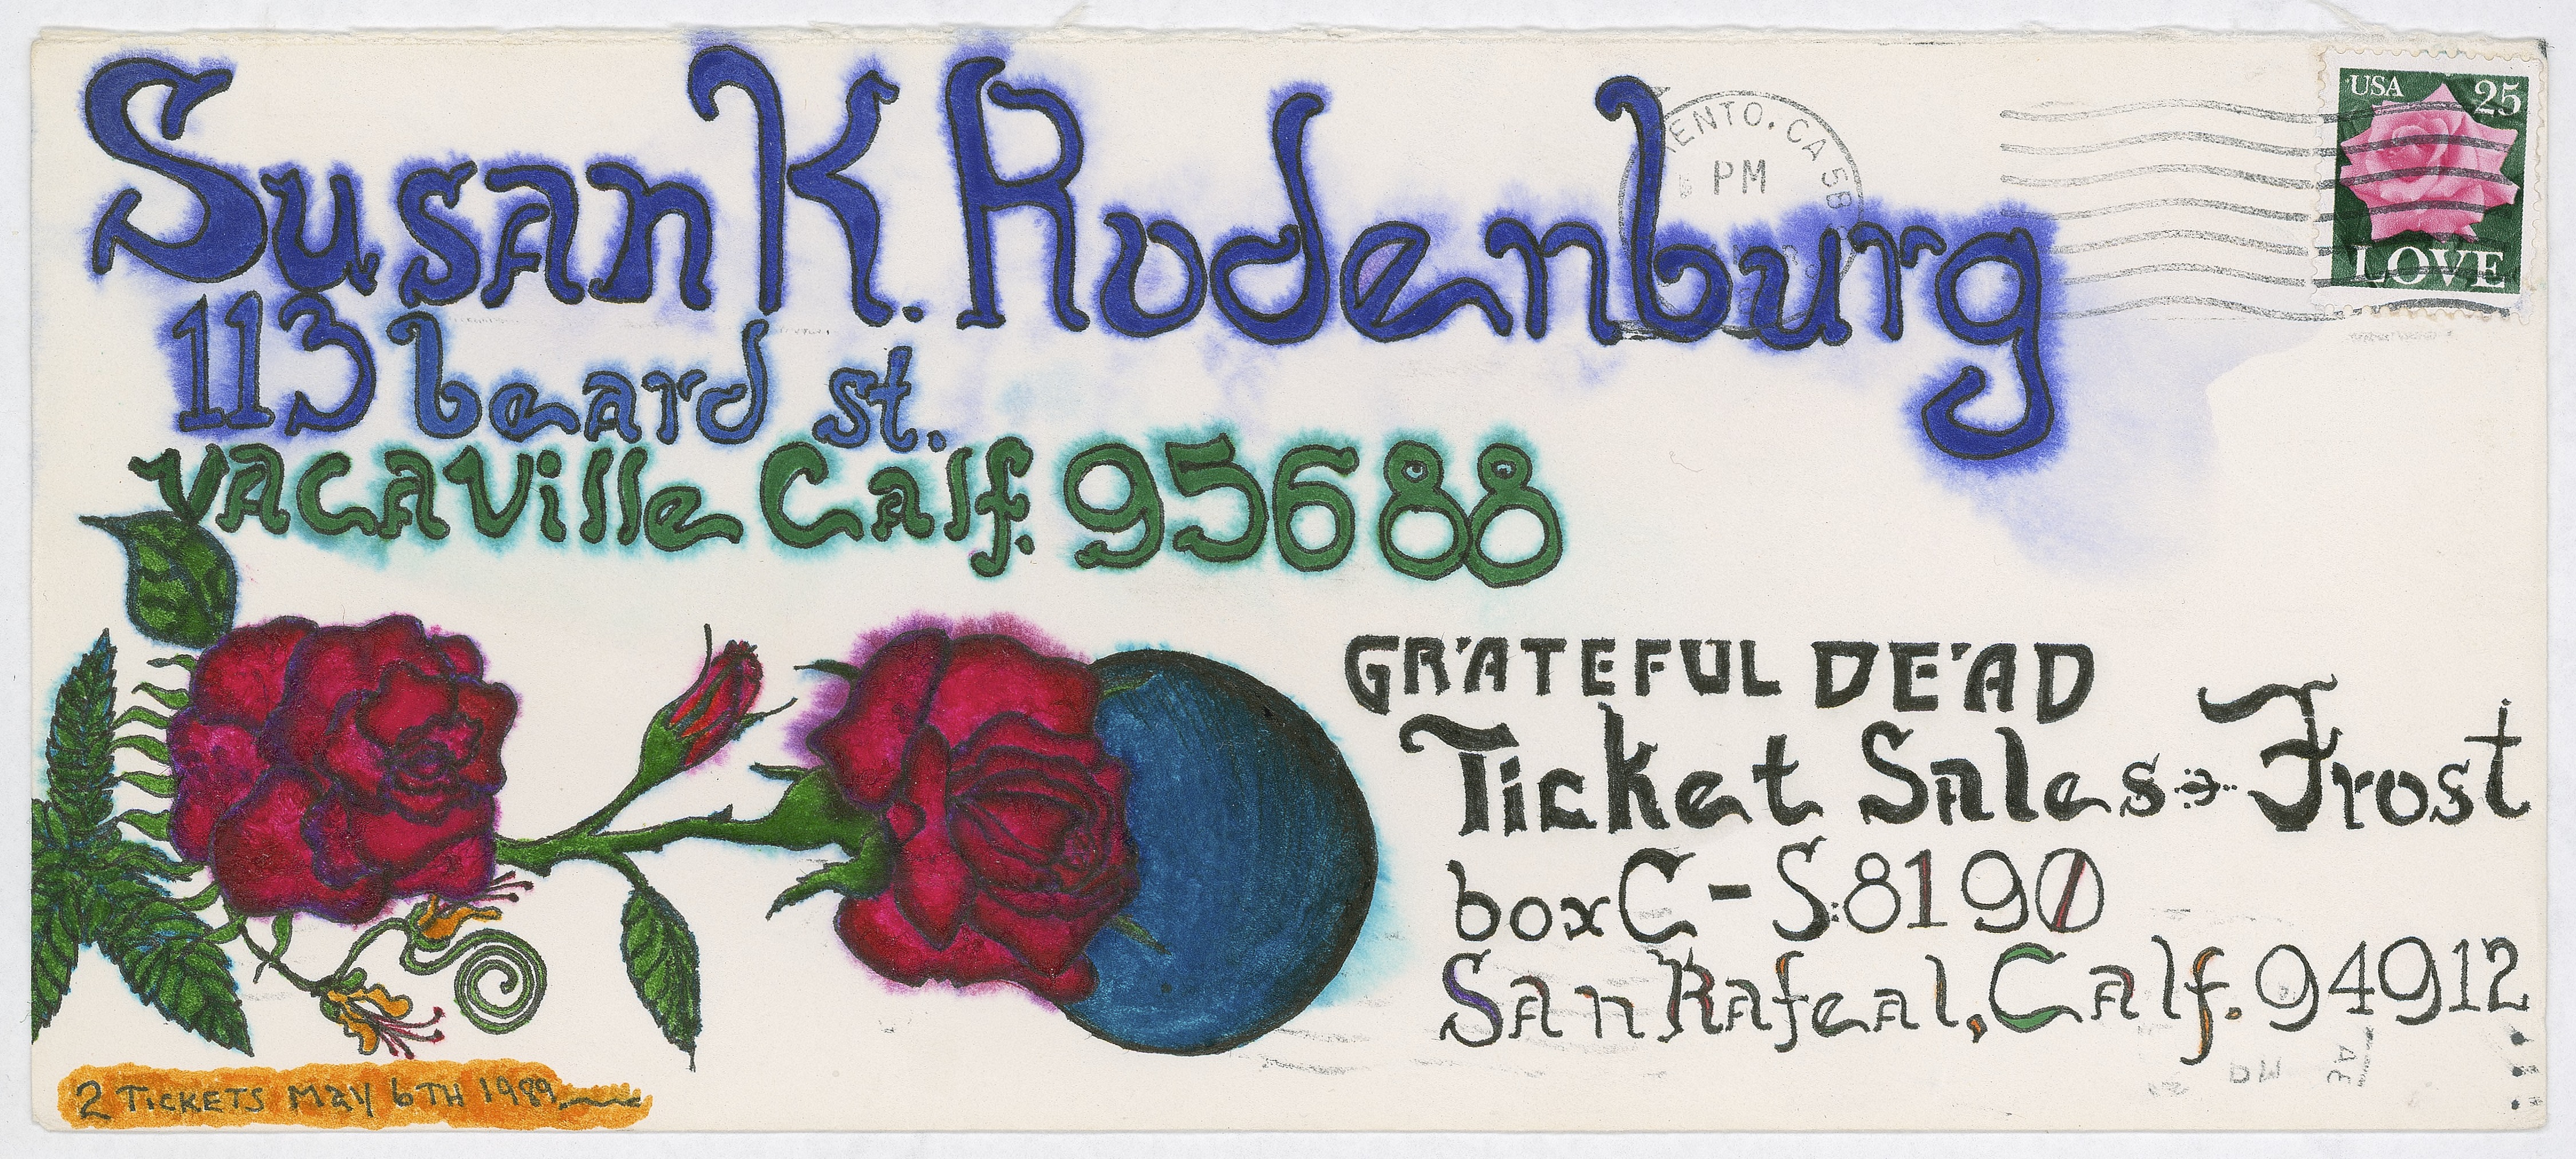 Susan K. Rodenburg
113 beard st.
vacaville Calf. 95688
ENTO, CA 95
PM
USA 25
LOVE
GRATEFUL DEAD
Ticket Sales Frost
box C-S8190
San Rafeal, Calf. 94912
2 TICKETS MAY 6TH 1989